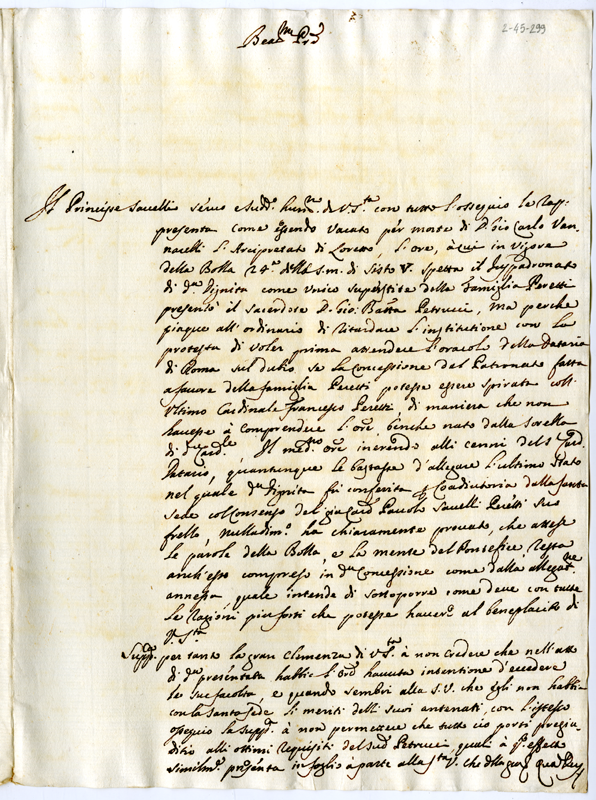 2-45-299
Beat.mo P.re
Il Principe Savelli servo e sudd.o hum.o di V. S.tà con tutto l'ossequio le rap=
presenta come essendo vacato per morte di D. Gio Carlo Van
nucelli l'Arcipretato di Loreto, l'ore, à cui in vigore
della Bolla 24.a della s.m. di Sisto V. spetta il Juspadronato
di d.a Dignita come Unico superstite della famiglia Peretti
presentò il sacerdote D. Gio: Batta Petrucci, ma perche
piacque all'ordinario di ritardare l'institutione con la
protesta di voler prima attendere l'oracolo della Dataria
di Roma sul dubio, se la concessione del Patronato fatta
a favore della famiglia Peretti potesse essere spirata coll'
ultimo Cardinale Francesco Peretti, di maniera che non
havesse à comprendere l'ore, benche nato dalla sorella
di d.o Card.le, Il med.mo ore inerendo alli cenni del Card.
Datario, quantunque le bastasse d'allegare l'ultimo stato
nel quale d.a Dignita fù conferita Coadiutoria dalla santa
sede col consenso del già Card. Paolo Savelli Peretti suo
frello, nulladim.o ha chiaramente provato, che attese
le parole della Bolla, e la mente del Pontefice resta
anch'esso compreso in d.a Concessione come dalla allegat.ne
annessa, quale intende di sottoporre come deve con tutte
le ragioni piu forti che potesse haver.e al beneplacito di
V. S.tà
Supp.ca per tanto la gran Clemenza di V. S.tà à non credere che nell'atto
di d.a presentata habbia l'ore havuta intentione d'eccedere
le sue facoltà, e quando sembri alla S.V. che egli non habbia
con la Santa sede li meriti delli suoi antenati, con l'istesso
ossequio la supp.ca à non permettere che tutto ciò porti pregiu=
ditio alli ottimi requisiti del sud.o Petrucci, quali à q.o effetto
similm.e presenta in foglio à parte alla S.tà V. che della gra